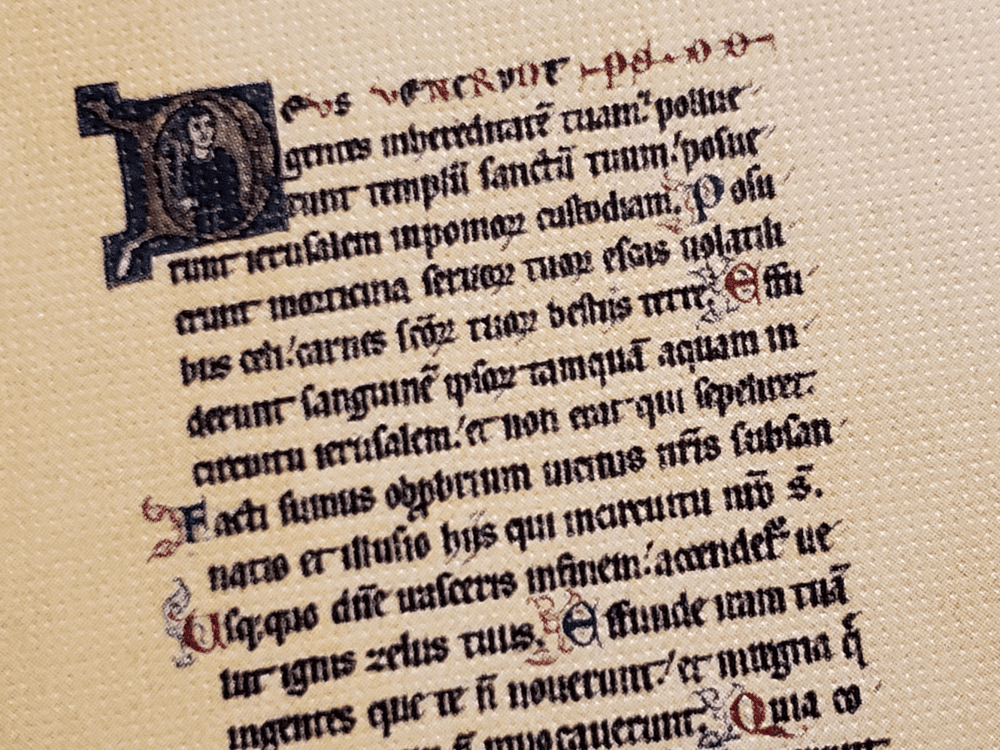 Deus venerunt
gentes inhereditatē tuam: pollue
runt templū sanctū tuum: posue
runt ierusalem inpomoꝝ custodiam. Posu
erunt morticina seruoꝝ tuoꝝ escis uolatili
bus celi: carnes scōꝝ tuoꝝ bestijs terre. Effu
derunt sanguinē ipsoꝝ tamquā aquam in
circuitu ierusalem: et non erat qui sepeliret.
Facti sumus obꝓbrium uicinis nr̄is subsan
natio et illusio hijs qui incircuitu nr̄o s̄.
Usq;quo dn̄e irasceris infinem: accendet᷑ ue
lut ignis zelus tuus. Effunde iram tuā
ingentes que te n̄ nouerunt: et inregna q̄
inuocauerunt. Quia co